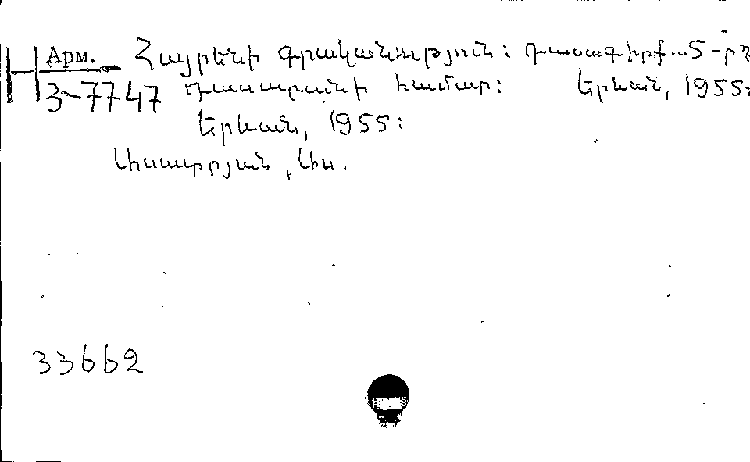 Арм. Հայրենի գրականություն: Դասագիրք 5-րդ
3-7747 դասարանի համար: Երևան, 1955:
Երևան, 1955:
33662